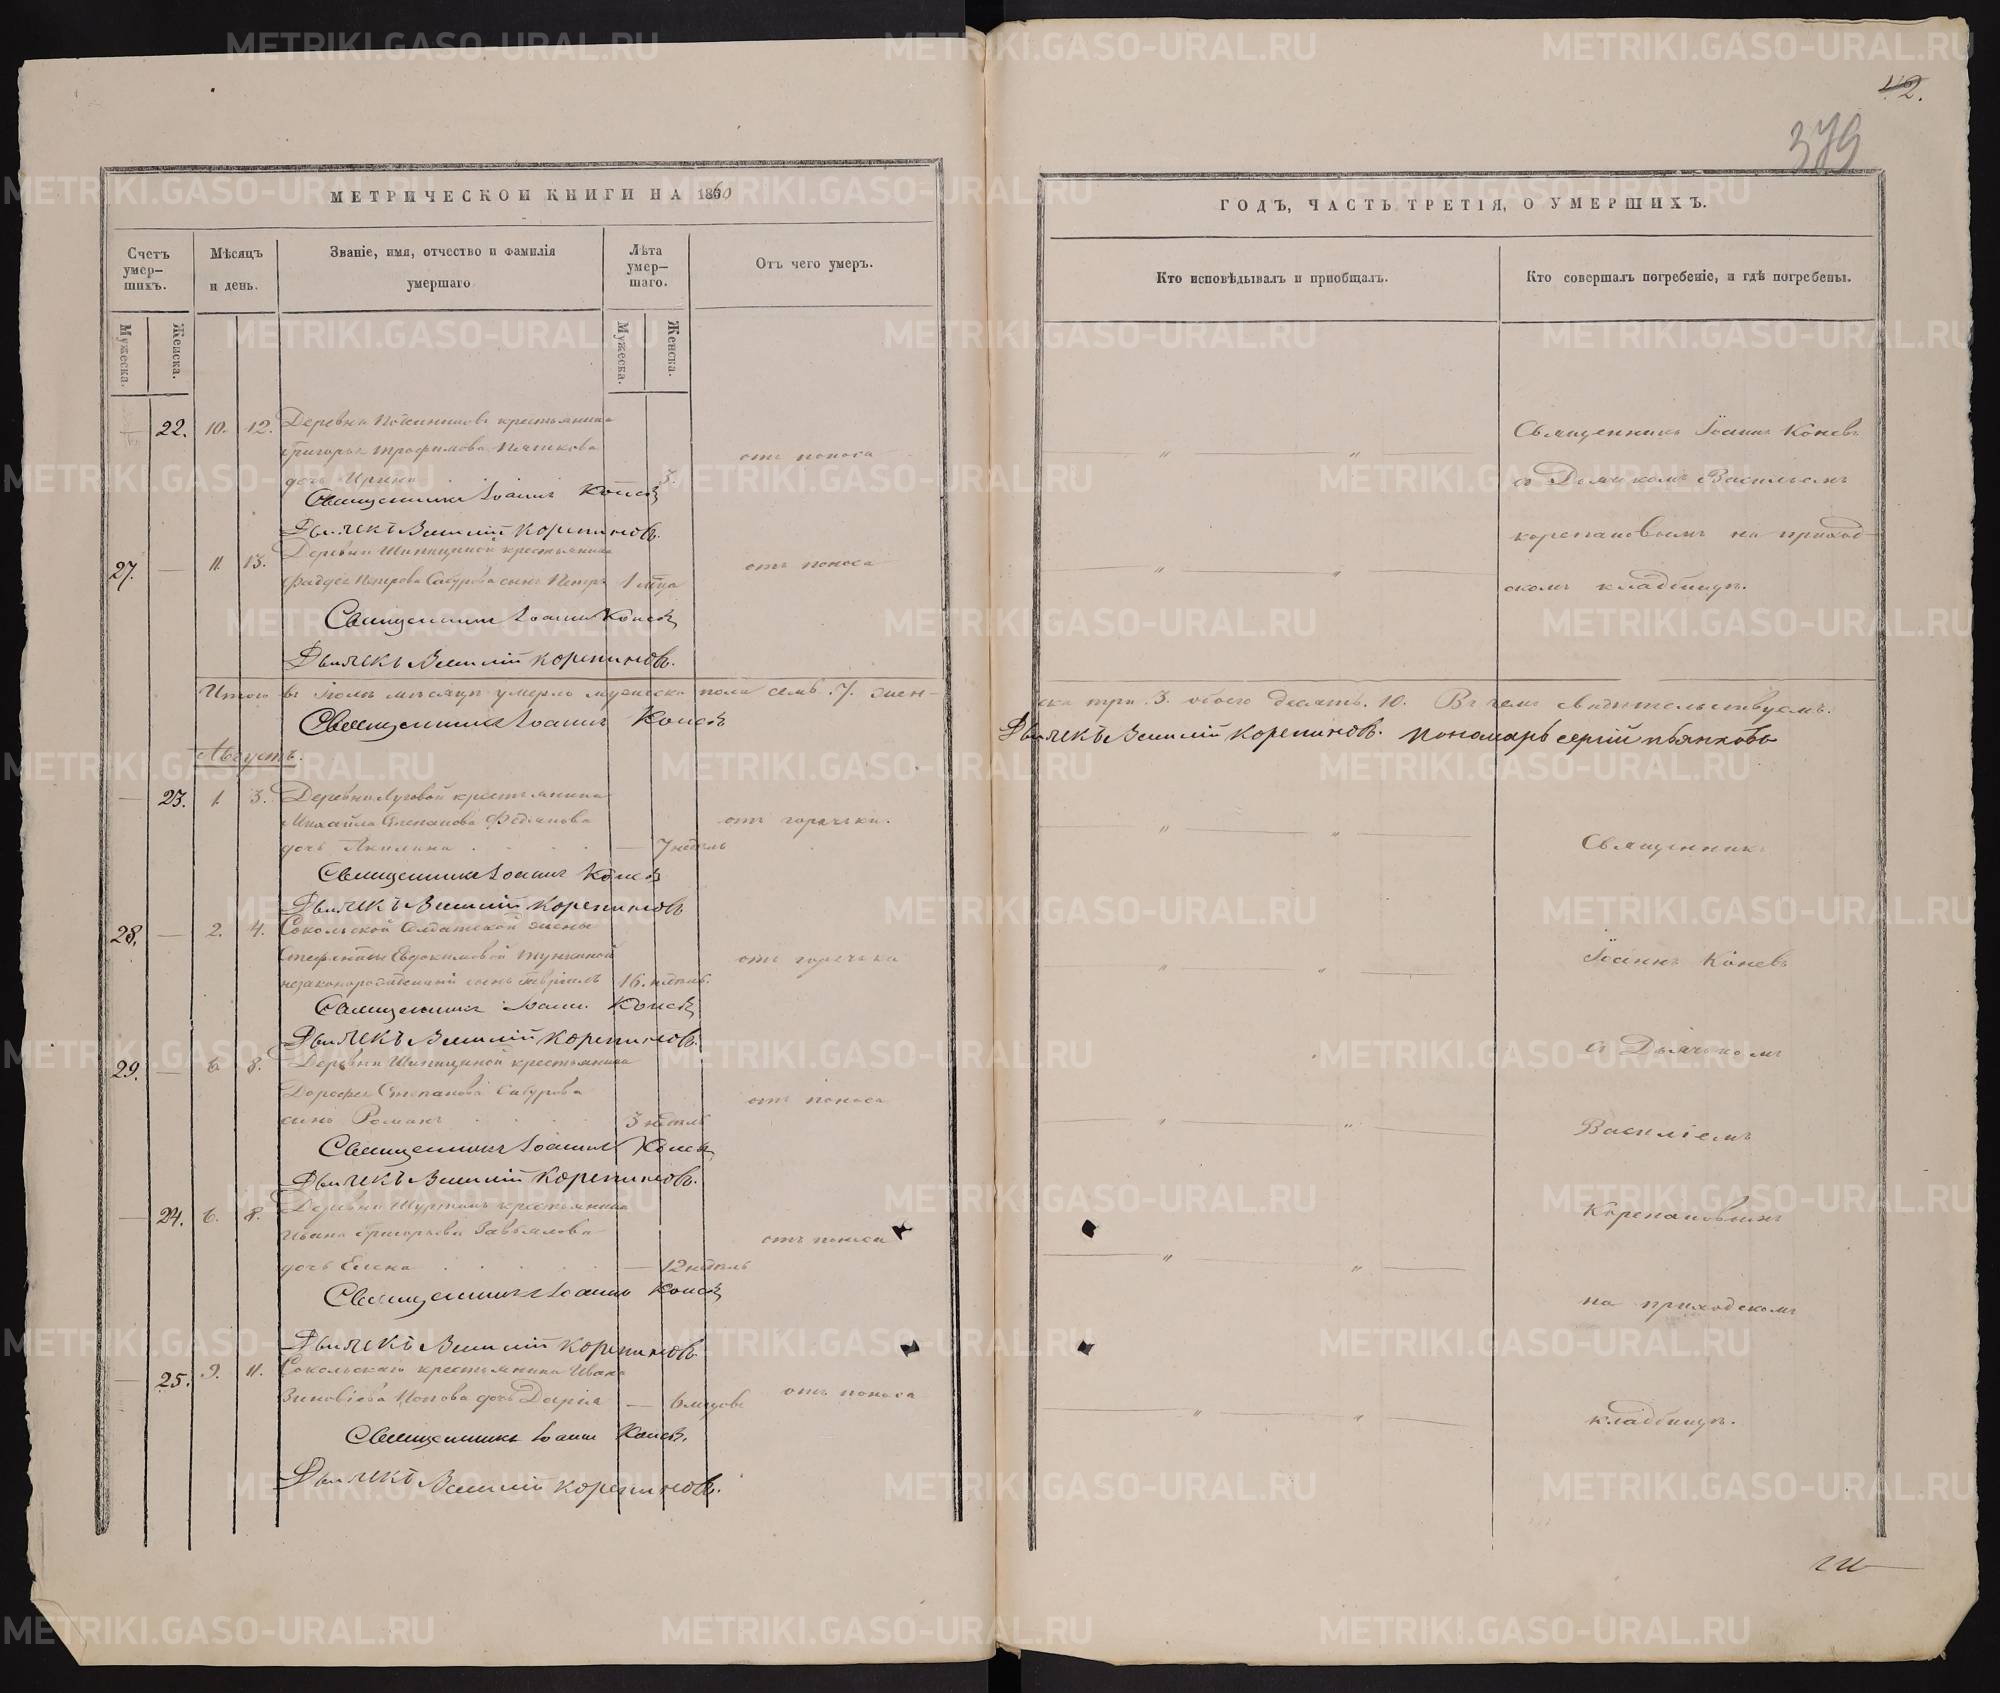 42.
379
МЕТРИЧЕСКОЙ КНИГИ НА 1860
ГОДЪ, ЧАСТЬ ТРЕТІЯ, О УМЕРШИХЪ.
Счетъ умер-
шихъ.
Мѣсяцъ
и день.
Званіе, имя, отчество и фамилія
умершаго
Лѣта
умер-
шаго.
Отъ чего умеръ.
Кто исповѣдывалъ и пріобщалъ.
Кто совершалъ погребеніе, и гдѣ погребены.
Мужеска.
Женска.
Мужеска.
Женска.
22. 10. 12. Деревни крестьянина
Григорья Трофимова Пьянкова
дочь Ирина 3. отъ поноса
Священникъ Іоаннъ Коневъ
Дьячекъ Василій Корепановъ.
27. 11. 13. Деревни Шипициной крестьянина
Фадѣя Петрова Сабурова сынъ Петръ 1 м͠ца отъ поноса
Священникъ Іоаннъ Коневъ
Дьячекъ Василій Корепановъ.
Священникъ Іоаннъ Коневъ
съ Дьячкомъ Васильемъ
Корепановымъ на приход-
скомъ кладбищѣ.
Итого въ Іюлѣ мѣсяцѣ умерло мужеска пола семь .7. жен-
ска три .3. обоего десять .10. Въ чемъ свидѣтельствуемъ.
Священникъ Іоаннъ Коневъ
Дьячекъ Василій Корепановъ. Пономарь Сергій Пьянковъ
Августъ.
23. 1. 3. Деревни Луговой крестьянина
Михайла Степанова Федянова
дочь Акилина 7 недѣль отъ горячки.
Священникъ Іоаннъ Коневъ
Дьячекъ Василій Корепановъ
28. 2. 4. Сокольской Солдатской жены
Стефаниды Евдокимовой
незаконорожденный сынъ Гавріилъ 16. недѣль. отъ горячки
Священникъ Іоаннъ Коневъ
Дьячекъ Василій Корепановъ.
29. 6. 8. Деревни Шипициной крестьянина
Дорофея Степанова Сабурова
сынъ Романъ 3 недѣль отъ поноса
Священникъ Іоаннъ Коневъ
Дьячекъ Василій Корепановъ.
24. 6. 8. Деревни крестьянина
Ивана Григорьева Завьялова
дочь Елена 12 недѣль отъ поноса
Священникъ Іоаннъ Коневъ
Дьячекъ Василій Корепановъ
25. 9. 11. Сокольскаго крестьянина Ивана
Зиновіева Попова дочь Дарія 6 мѣсцовъ отъ поноса
Священникъ Іоаннъ Коневъ.
Дьячекъ Василій Корепановъ.
Священникъ
Іоаннъ Коневъ
съ Дьячкомъ
Василіемъ
Корепановымъ
на приходскомъ
кладбищѣ.
METRIKI.GASO-URAL.RU